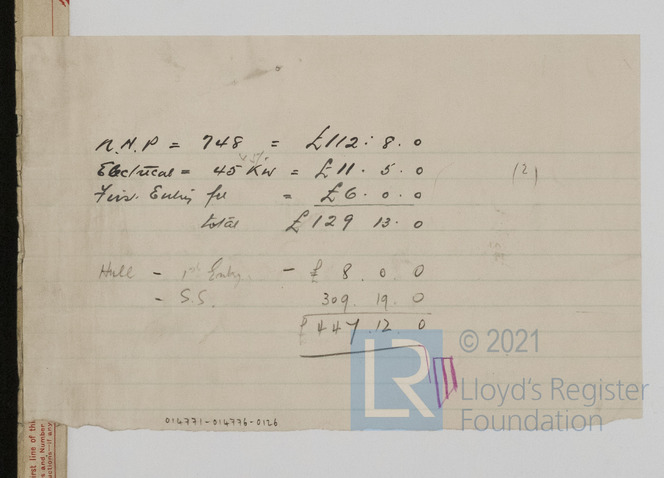 N.H.P = 748 = £112 : 8 . 0
Electrical = 45 Kw = £11 . 5 . 0
First Entry fee = £6 . 0 . 0
total £129 13 . 0
(2)
Hull - 1st Entry. - £ 8 . 0 . 0
- S.S. 309 . 19 . 0
£447 . 12 . 0
014771-014776-0126
LR
© 2021
Lloyd's Register
Foundation
irst line of thi
s and Number